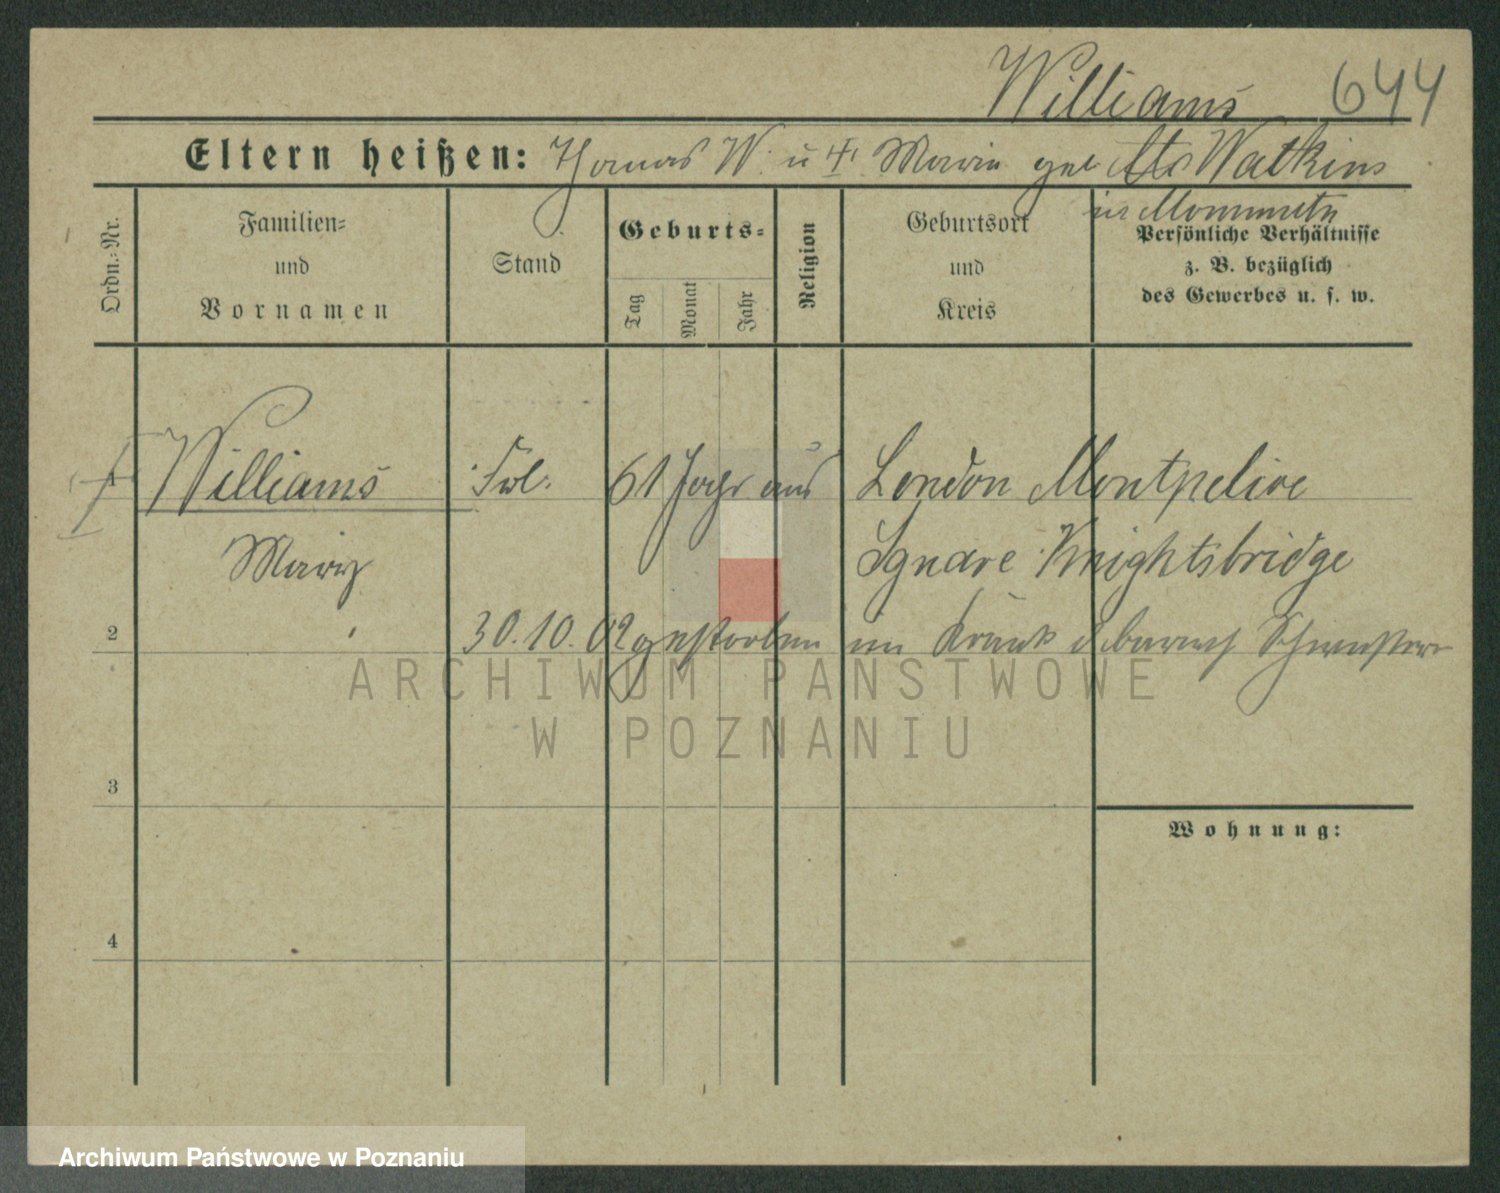 Williams 644
Eltern heißen: Thomas W. u Maria geb Watkins
in
Ordn.-Nr.
Familien-
und
Vornamen
Stand
Geburts-
Tag
Monat
Jahr
Religion
Geburtsort
und
Kreis
Persönliche Verhältnisse
z. B. bezüglich
des Gewerbes u. s. w.
Williams Frl. 61 Jahr aus London Montpelire
Mary Sgnare Knightsbridge
2 30.10.02 gestorben im Krank
ARCHIWUM PAŃSTWOWE
W POZNANIU
3
Wohnung:
4
Archiwum Państwowe w Poznaniu